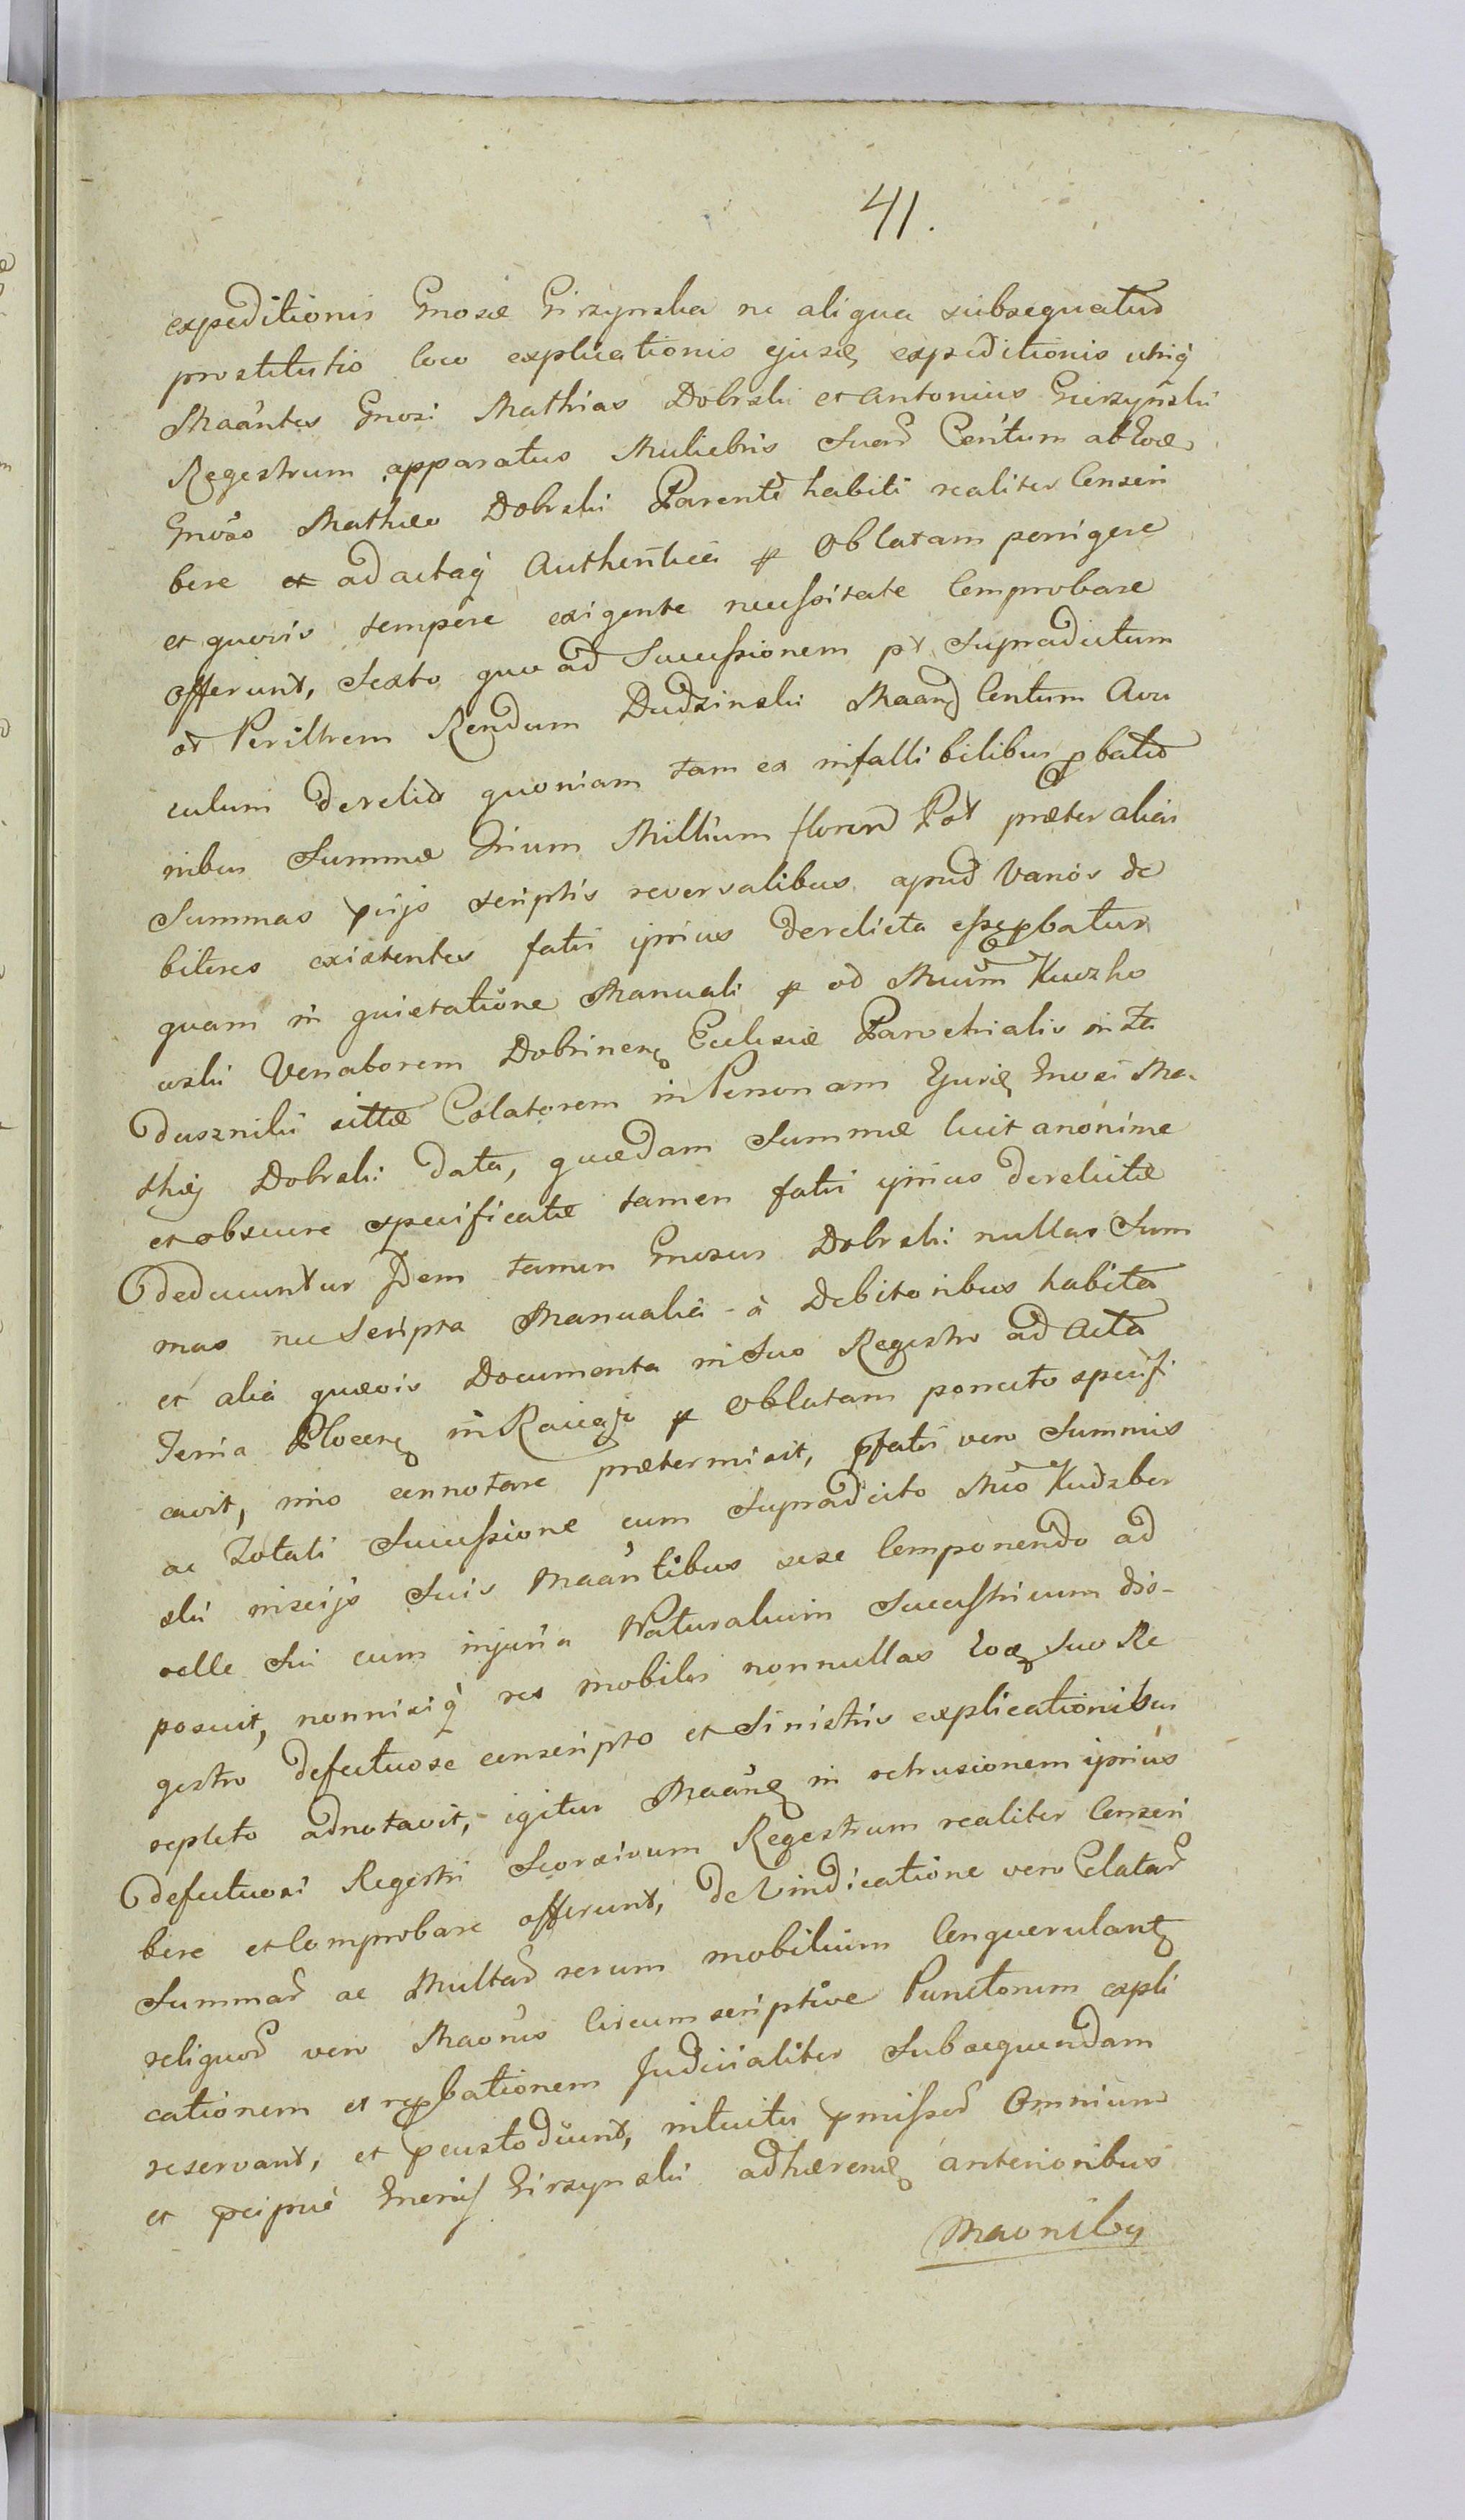 41.
expeditionis Gnosæ Girzynska ne aliqua subsequatur
prostitutio loco explicationis ejusd expeditionis utriq
Maantes Gnosi Mathias Dobrski et Antonius Girzynski
Regestrum apparatus Muliebris suar Centum ab
Gnoso Mathæo Dobrski Parente habiti realiter Conscri
bere et ad actaq Authentica p Oblatam porrigere
et quovis tempore exigente necessitate Comprobare
offerunt, Sexto quo ad Successionem pt Supradictum
or Perillrem Rendum Dudzinski Maand Centum Avu
culum derelict quoniam tam ex infallibilibus pbatio
nibus Summæ Trium Millium floren Pol præter alias
Summas pijs scriptis reversalibus apud Varios de
bitores existentes fatis iprius derelicta esse pbatur
quam in quietatione Manuali p od Mum Kuczko
wski Venatorem Dobrinen Ecclesiæ Parochialis in Za
dusznikii sittæ Colatorem in Personam Ejusd Gnosi Ma-
thiæ Dobrski data, quædam Summæ licet anonime
et obscure specificatæ tamen fatis iprius derelictæ
deducuntur Idem tamen Gnosus Dobrski nullas Sum
mas nec Scripta Manualia à Debitoribus habita
et alia quævis Documenta in Suo Regestro ad Acta
Terria Plocen in Raciąż p Oblatam porrecto specifi
cavit, imo connotare prætermisit, pfatis vero Summis
ac Totali Successione cum Supradicto Mco Kudzber
ski insciis Suis Maantibus sese Componendo ad
velle Sui cum injuria Naturalium Successricum dis-
posuit, nonnisiq res mobiles nonnullas Suo Re
gestro defectuose conscripto et Sinistris explicationibus
repleto adnotavit, igitur Maand in retrusionem iprius
defectuosi Regestri Seorsivum Regestrum realiter Conscri
bere et Comprobare offerunt, de Vindicatione vero Celatar
Summar ac Multar rerum mobilium Conquerulant
reliquor vero Maonis Circumscriptive Punctorum expli
cationem et repbationem Judicialiter Subsequendam
reservant, et pcustodiunt, intuitu pmissor Omnium
et pcipue Gneris Girzynski adhæren anterioribus
Maonilby